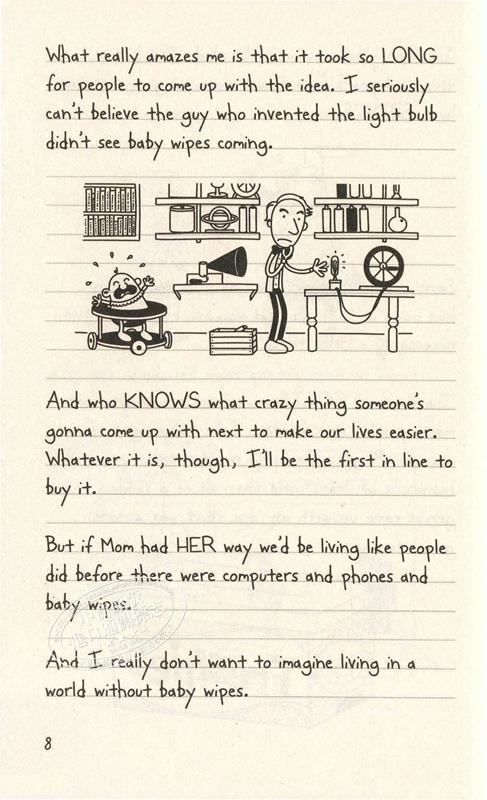 What really amazes me is that it took so LONG
for people to come up with the idea. I seriously
can't believe the guy who invented the light bulb
didn't see baby wipes coming.
And who KNOWS what crazy thing someone's
gonna come up with next to make our lives easier.
Whatever it is, though, I'll be the first in line to
buy it.
But if Mom had HER way we'd be living like people
did before there were computers and phones and
baby wipes.
And I really don't want to imagine living in a
world without baby wipes.
8